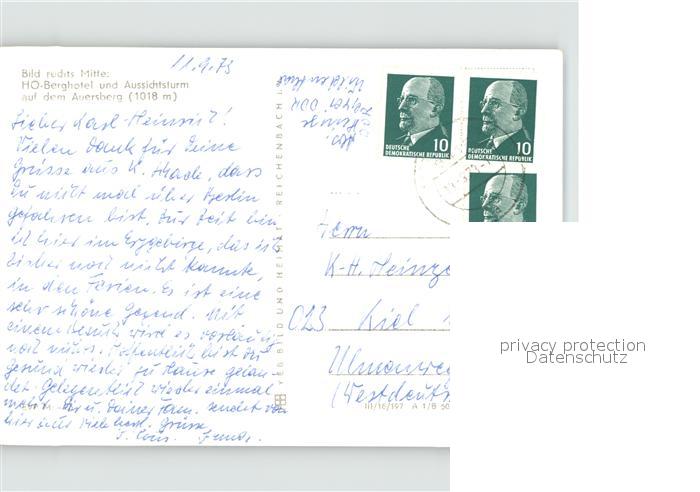 11.9.73
Bild rechts Mitte:
HO-Berghotel und Aussichtsturm
auf dem Auersberg (1018 m)
Lieber Karl-Heinrich!
Vielen Dank für Deine
Grüsse aus K. Schade, dass
Du nicht mal über Berlin
gefahren bist. Zur Zeit bin
ich hier im Erzgebirge, das ich
bisher noch nicht kannte,
in den Ferien. Es ist eine
sehr schöne Gegend. Mit
einem Besuch wird es vorläufig
noch nichts. Hoffentlich bist Du
gesund wieder zu Hause gelan-
det. Gelegentlich wieder einmal
mehr. Dir u. Deiner Fam. sendet von
hier aus herzl. Grüsse
VEB BILD UND HEIMAT REICHENBACH I.
DDR
10
DEUTSCHE
DEMOKRATISCHE REPUBLIK
10
DEUTSCHE
DEMOKRATISCHE REPUBLIK
Herrn
K-H.
023 Kiel
(Westdeut
III/16/197 A 1/B 50
privacy protection
Datenschutz